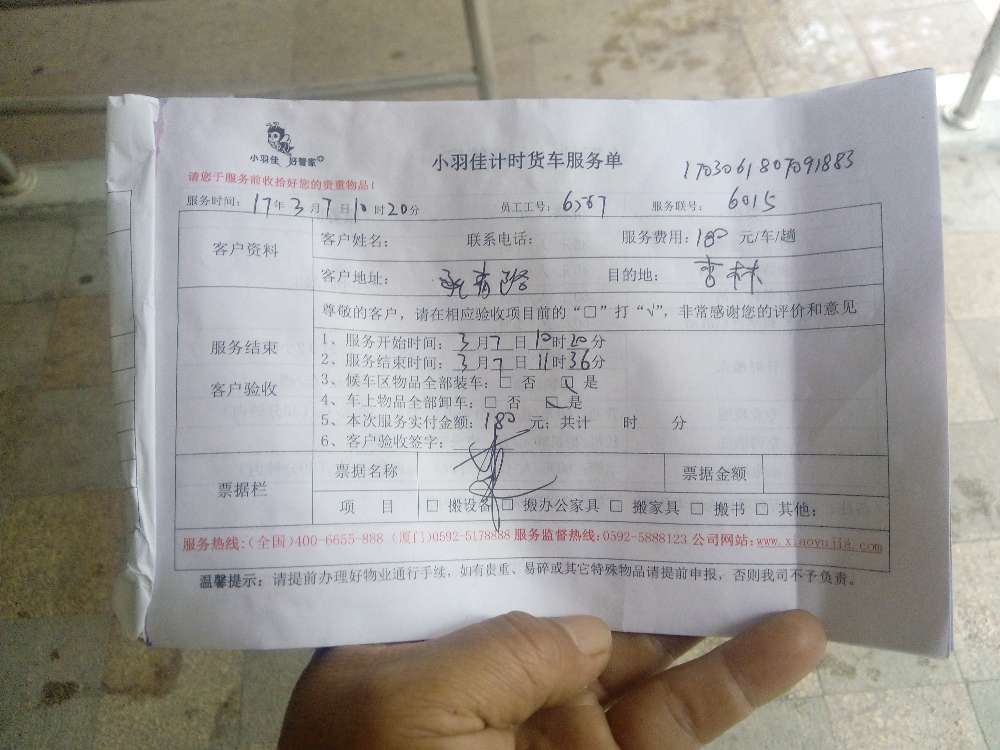 小羽佳 好管家
小羽佳计时货车服务单
1703061807091883
请您于服务前收拾好您的贵重物品!
服务时间: 17年3月7日10时20分 员工工号: 6367 服务联号: 6015
客户资料
客户姓名: 联系电话: 服务费用:180 元/车/趟
客户地址: 目的地: 杏林
服务结束
客户验收
尊敬的客户，请在相应验收项目前的“□”打“√”，非常感谢您的评价和意见
1、服务开始时间: 3月7日10时20分
2、服务结束时间: 3月7日11时36分
3、候车区物品全部装车: □ 否 ☑ 是
4、车上物品全部卸车: □ 否 ☑ 是
5、本次服务实付金额: 180 元; 共计 时 分
6、客户验收签字:
票据栏
票据名称 票据金额
项 目 □ 搬设备 □ 搬办公家具 □ 搬家具 □ 搬书 □ 其他:
服务热线:(全国)400-6655-888 (厦门)0592-5178888 服务监督热线:0592-5888123 公司网站:www.xiaoyujia.com
温馨提示: 请提前办理好物业通行手续，如有贵重、易碎或其它特殊物品请提前申报，否则我司不予负责。